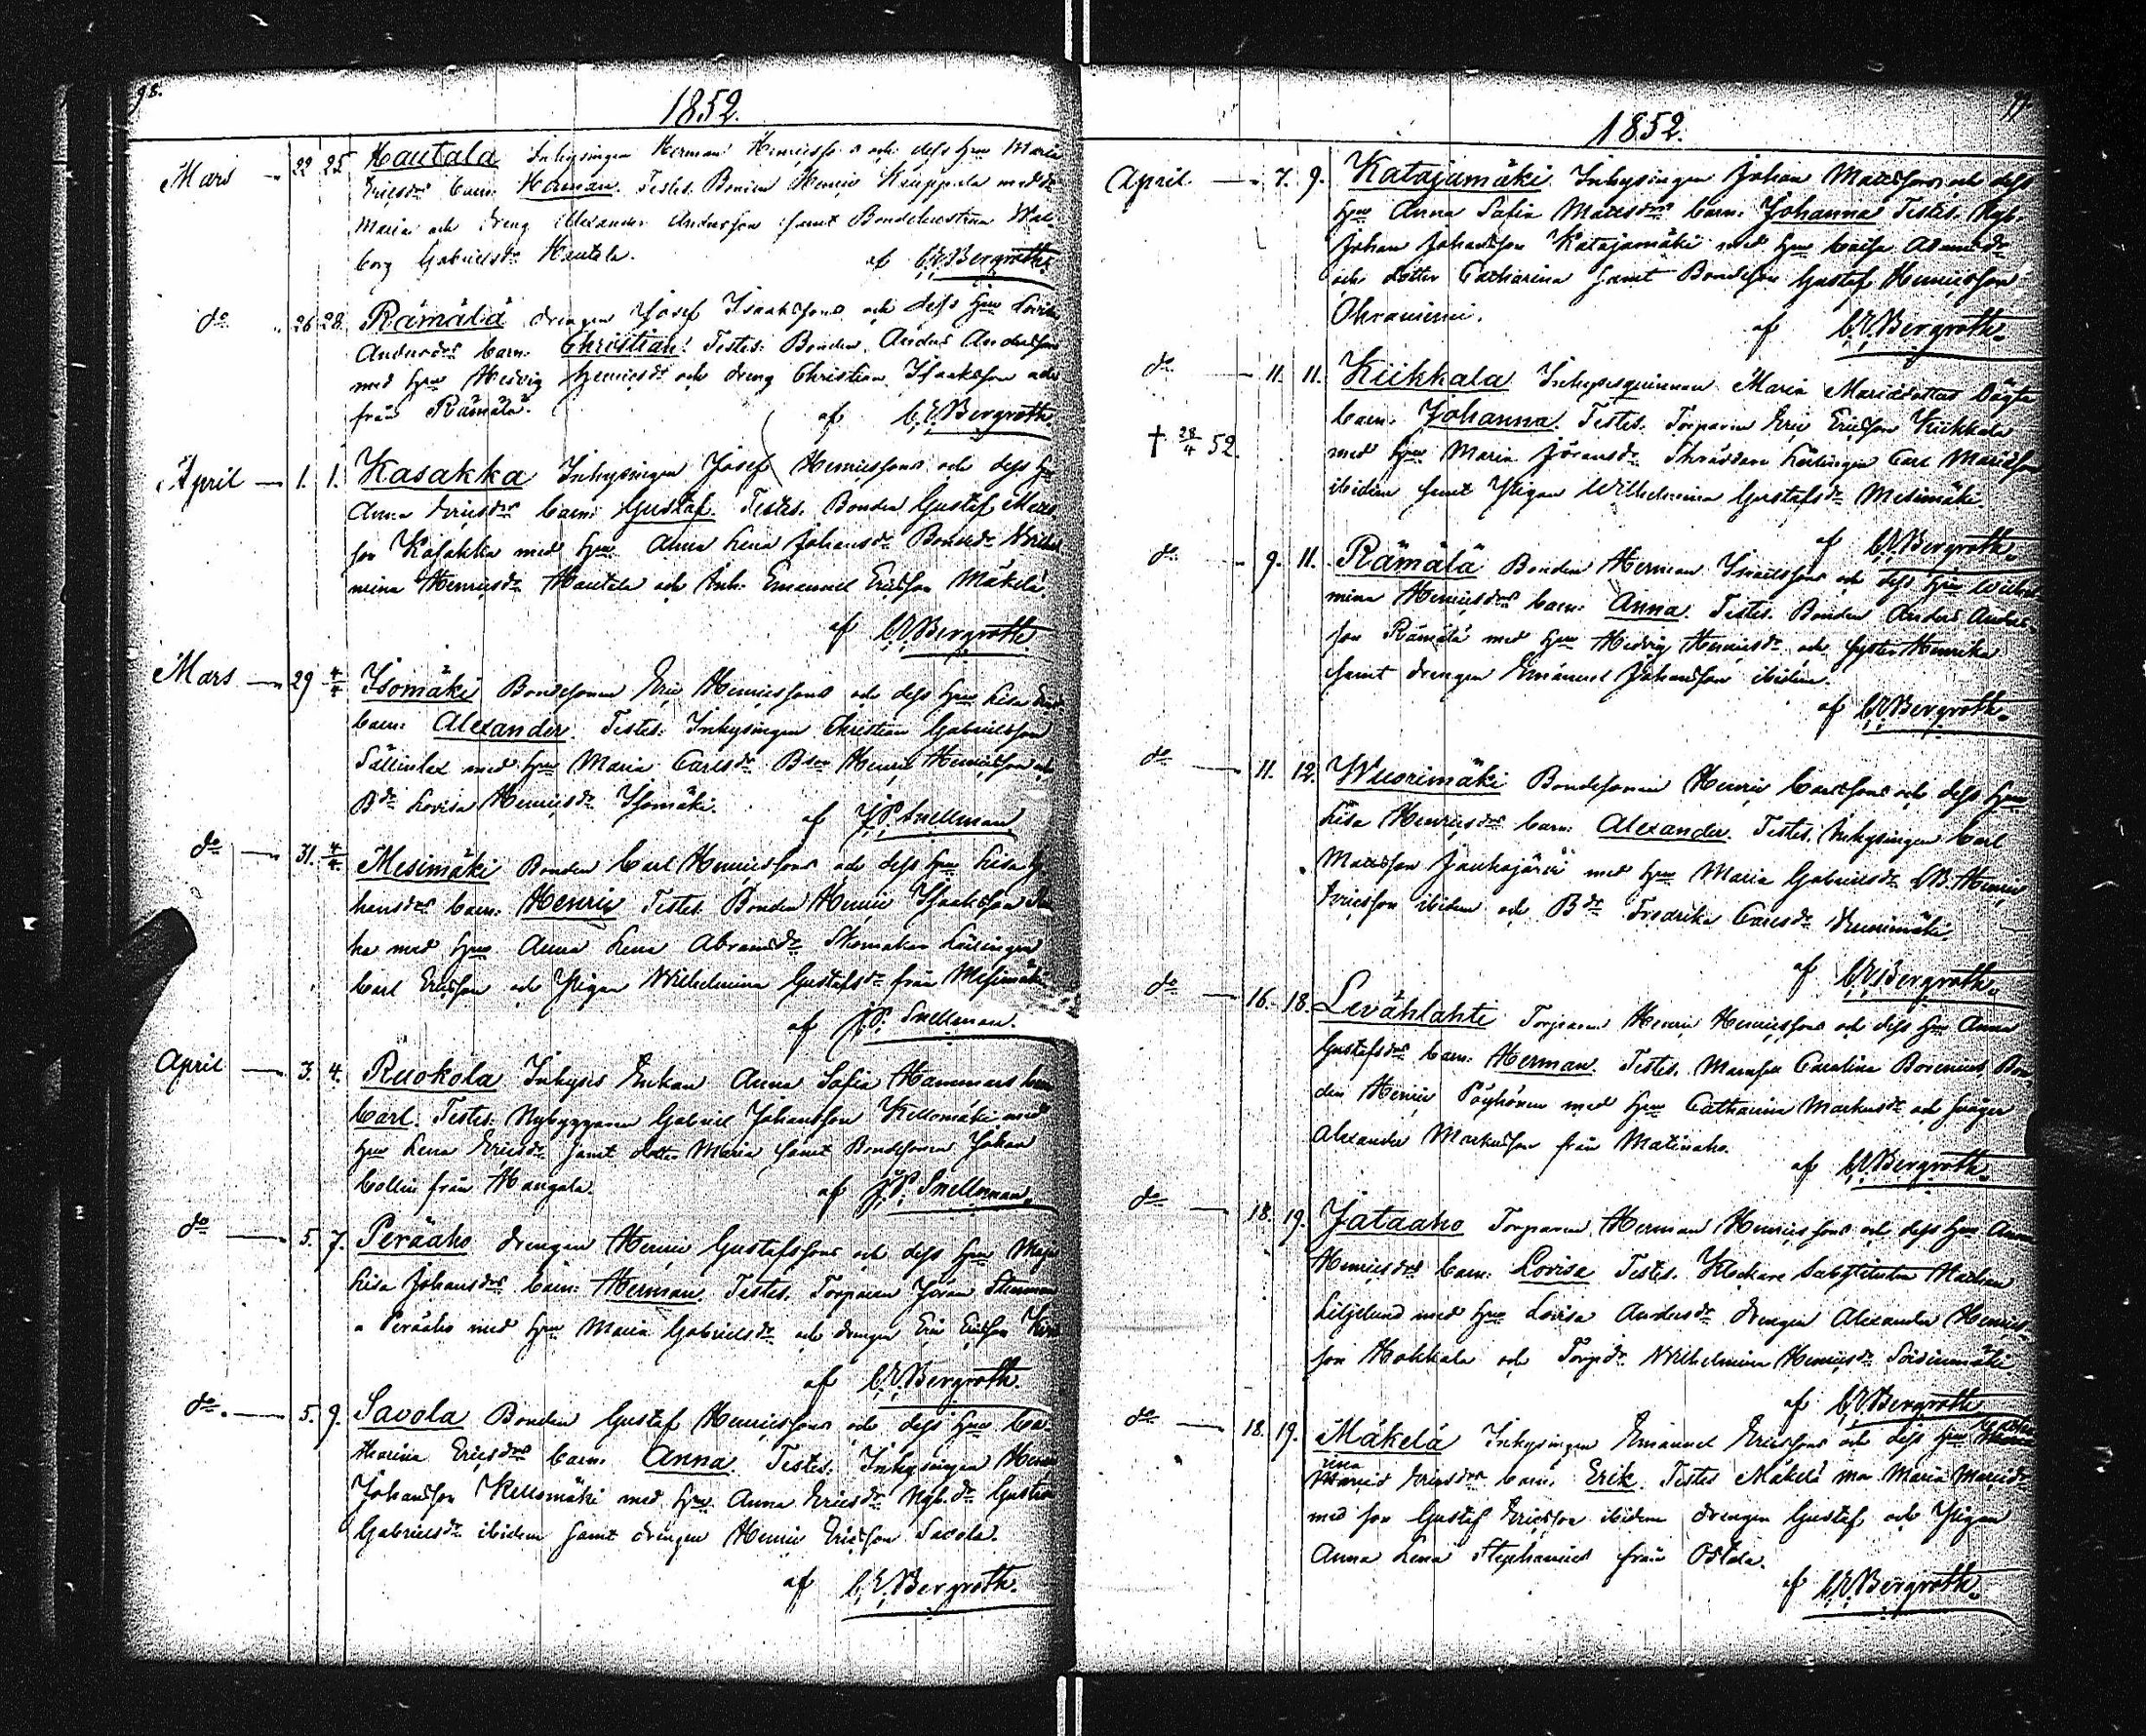 98.
1852.
Mars 22 25 Hautala Inhysingen Herman Henricss. och dess Hru Maria
Ericsdrs barn: Herman. Testes. Bonden Henric Knuppala med dr
Maria och dreng Alexander Andersson samt Bondehustrun Wal-
borg Gabrielsdr Hautala. af C.E. Bergroth.
do 26 28 Rämälä drengen Josef Isaakssons och dess Hru Lovisa
Andersdrs barn: Christian. Testes: Bonden Anders Andersson
med Hru Hedvig Henricsdr och dreng Christian Isaaksson
från Rämälä. af C.E. Bergroth.
April 1. 1. Kasakka Inhysingen Josef Henricssons och dess H
Anna Ericsdrs barn: Gustaf. Testes. Bonden Gustaf Matts
son Kasakka med Hru Anna Lena Johansdr Bonde dr Wilhel
mina Henricsdr Hautala och Inh. Emanuel Ericsson Mäkelä
af C.E. Bergroth
Mars 29 4/4 Isomäki Bondesonen Eric Henricssons och dess Hru Lisa
barn: Alexander. Testes: Inhysingen Christian Gabrielsson
med Hru Maria Carlsdr Bson Henric Henricsson och
Bdr Lovisa Henricsdr Isomäki. af J.P. Snellman
do 31. 4/4 Mesimäki Bonden Carl Henricssons och dess Hru Lisa Jo
hansdrs barn: Henric Testes. Bonden Henric Isaaksson
ha med Hru Anna Lena Abramsdr Skomakar Lärlingen
Carl Ericsson och Pigan Wilhelmina Gustafsdr från Mesimäki
af J.P. Snellman.
April 3. 4. Ruokola Inhyses Enkan Anna Sofia Hammars barn
Carl. Testes: Nybyggaren Gabriel Johansson Kellomäki med
Hru Lena Ericsdr samt dotter Maria samt Bondesonen Johan
Collin från Kangala. af J.P. Snellman.
do 5. 7. Peräaho drengen Henric Gustafssons och dess Hru Maja
Lisa Johansdrs barn: Herman. Testes. Torparen Jöran
a Peräaho med Hru Maria Gabrielsdr och drengen Eric Ericsson
af C.E. Bergroth.
do. 5. 9. Savola Bonden Gustaf Henricssons och dess Hru Ca-
tharina Ericsdrs barn: Anna. Testes. Inhysingen Henric
Johansson Kellomäki med Hru Anna Ericsdr Nyb. dr Gustava
Gabrielsdr ibidem samt drengen Henric Ericsson Savola.
af C.E. Bergroth.
1852.
April 7. 9. Katajamäki. Inhysingen Johan Mattssons och dess
Hru Anna Sofia Mattsdrs barn: Johanna Testes. Nyb.
Johan Johansson Katajamäki med Hru Caisa Adamsdr
och dotter Catharina samt Bondeson Gustaf Henricsson
af C.E. Bergroth.
do 11. 11. Kiikkala Inhysesqvinnan Maria Mariasdotters Oägta
barn: Johanna. Testes. Torparen Eric Ericsson Kiikkala
† 28/4 52. med Hru Maria Jöransdr Skräddare Lärlingen Carl
ibidem samt Pigan Wilhelmina Gustafsdr Mesimäki.
af C.E. Bergroth.
do 9. 11. Rämälä Bonden Herman Israelssons och dess Hru Wilhel
mina Henricsdrs barn: Anna. Testes. Bonden Anders Anders-
son Rämälä med Hru Hedvig Henricsdr och syster Henrika
samt drengen Emanuel Johansson ibidem.
af C.E. Bergroth.
do 11. 12. Wuorimäki Bondesonen Henric Carlssons och dess Hru
Lisa Henricsdrs barn: Alexander. Testes. Inhysingen Carl
Mattsson Jauhojärvi med Hru Maria Gabrielsdr Henric
Ericsson ibidem och Bdr Fredrika Carlsdr Wuorimäki.
af C.E. Bergroth.
do 16. 18. Levählahti Torparen Henric Henricssons och dess Hru Anna
Gustafsdrs barn: Herman. Testes. Mamsell Carolina Borenius Bon
den Henric Pöyhönen med Hru Catharina Markusdr och svåger
Alexander Markusson från Matinaho.
af C.E. Bergroth.
do 18. 19. Jataaho Torparen Herman Henricssons och dess Hru Anna
Henricsdrs barn: Lovisa Testes. Klockare Substituten
Liljelund med Hru Lovisa Andersdr drengen Alexander Henrics-
son Hokkala och Torp dr Wilhelmina Henricsdr
af C.E. Bergroth
do 18. 19. Mäkelä Inhysingen Emanuel Ericssons och dess Hru
rina Ericsdrs barn: Erik. Testes Mäkelä mor Maria
med son Gustaf Ericsson ibidem drengen Gustaf och Pigan
Anna Lena Stephanus från Ostola.
af C.E. Bergroth.